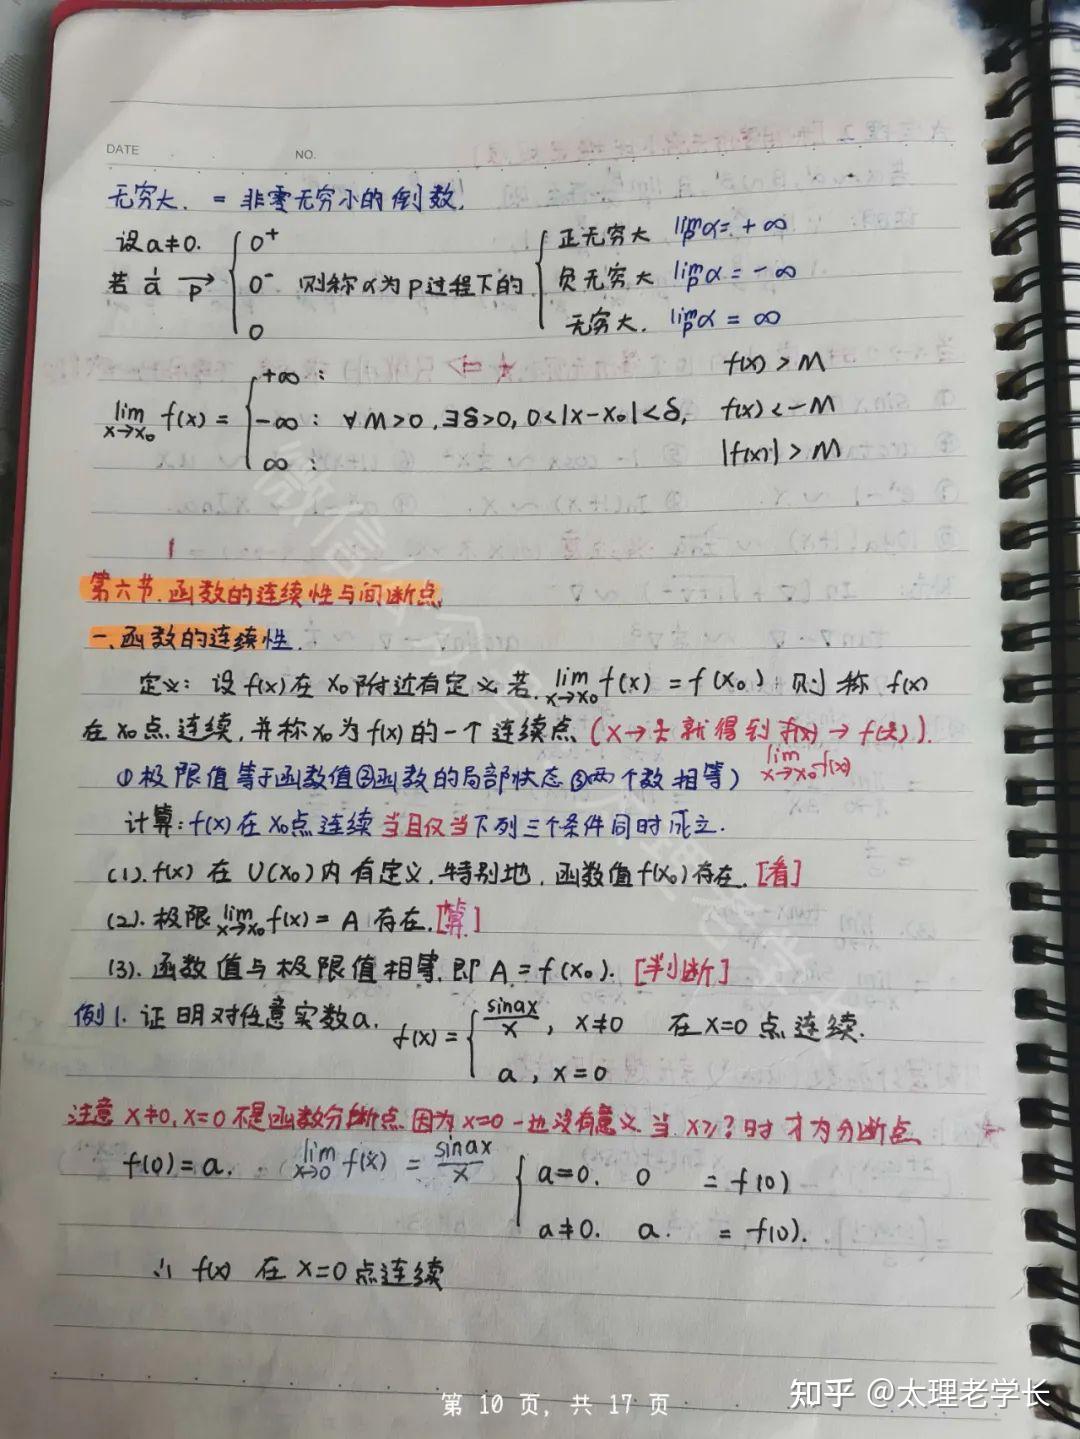 DATE
NO.
无穷大. = 非零无穷小的倒数.
设α≠0.
若 1/α →p { 0⁺ 0⁻ 0 则称α为P过程下的 { 正无穷大 lim_p α=+∞
负无穷大 lim_p α=-∞
无穷大. lim_p α=∞
lim_{x→x₀} f(x) = { +∞ : f(x)>M
-∞ : ∀M>0,∃δ>0, 0<|x-x₀|<δ, f(x)<-M
∞ : |f(x)|>M
第六节.函数的连续性与间断点
一.函数的连续性.
定义: 设f(x)在x₀附近有定义若 lim_{x→x₀} f(x) = f(x₀) 则称 f(x)
在x₀点连续,并称x₀为f(x)的一个连续点(x→ 就得到 f(x)→f( )).
①极限值等于函数值②函数的局部状态③两个数相等) lim_{x→x₀} f(x)
计算: f(x)在x₀点连续当且仅当下列三个条件同时成立.
(1).f(x)在U(x₀)内有定义.特别地,函数值f(x₀)存在.[看]
(2).极限 lim_{x→x₀} f(x)=A存在.[算]
(3).函数值与极限值相等.即A=f(x₀). [判断]
例1.证明对任意实数a. f(x)= { sinax/x, x≠0 在x=0点连续.
a, x=0
注意 x≠0, x=0不是函数分断点.因为x=0一边没有意义.当x≥?时才为分断点
f(0)=a. lim_{x→0} f(x) = sinax/x { a=0. 0 = f(0)
a≠0. a. = f(0).
∴ f(x) 在x=0点连续
微信公众号:太理老学长
第 10 页, 共 17 页
知乎 @太理老学长